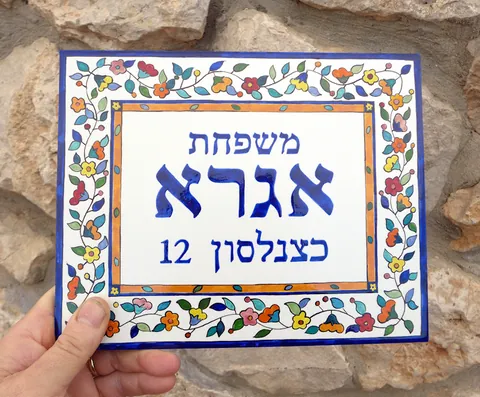 משפחת
אגרא
כצנלסון 12